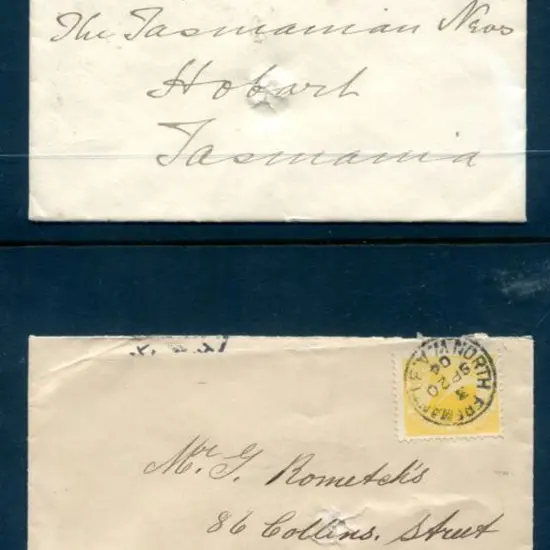 The Tasmanian News
Hobart
Tasmania
NORTH FREMANTLE W.A
3
SP 20
04
Mr G. Rometch's
86 Collins. Street